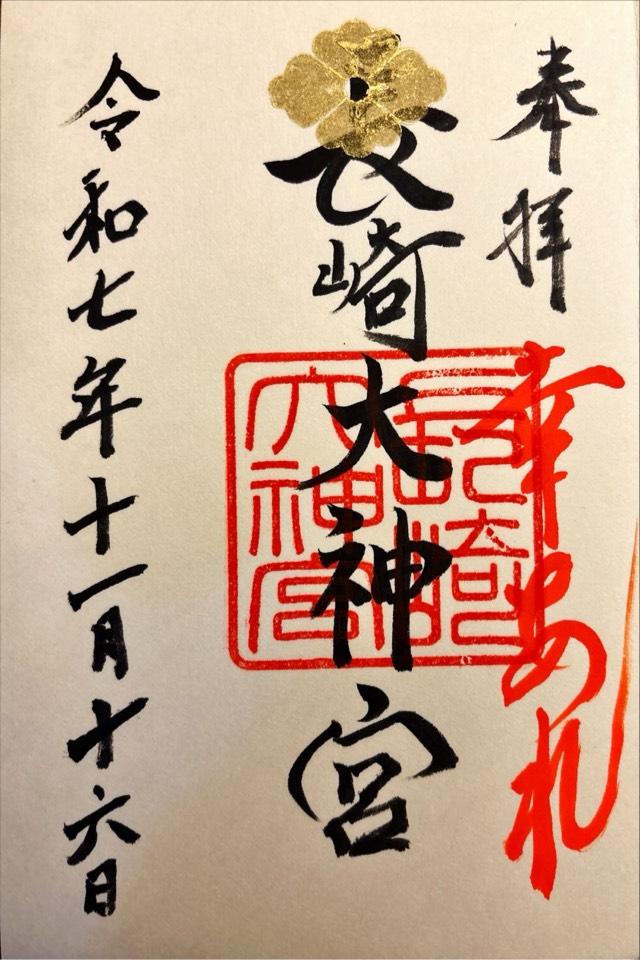 奉拝
幸あれ
長崎大神宮
長崎
大神宮
令和七年十一月十六日